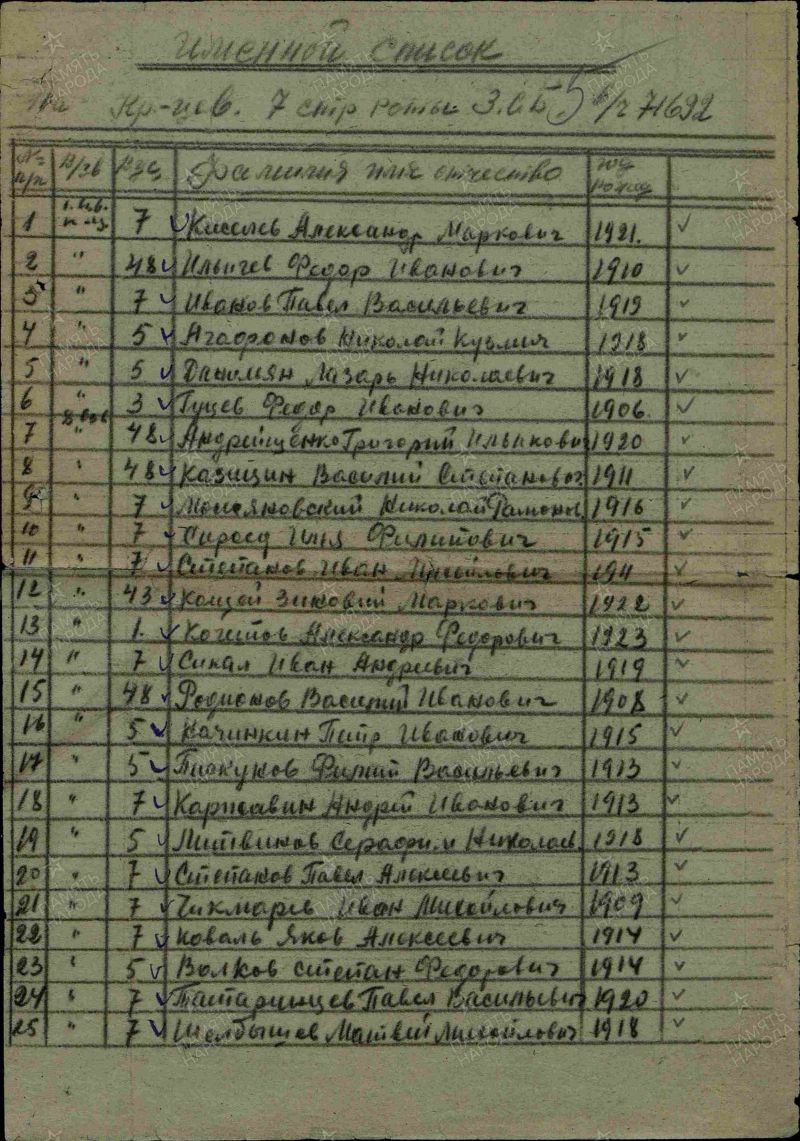 Именной список
на Кр-цев. 7 стр роты З.С.Б 5 в/ч 71692
№ п/п В/зв ВУС Фамилия имя отчество год рожд
1 к-ц 7 Киселев Александр Маркович 1921.
2 " 48 Ильичев Федор Иванович 1910
3 " 7 Иванов Павел Васильевич 1919
4 " 5 Агафонов Николай Кузмич 1918
5 " 5 Лазарь Николаевич 1918
6 " 3 Гуцев Федор Иванович 1906.
7 " 48 Андрейценко Григорий 1920
8 " 48 Казицин Василий Степанович 1911
9 " 7 Николай 1916
10 " 7 Илья Филипович 1915
11 " 7 Степанов Иван Михайлович 1911
12 " 43 Кощей Зиновий Маркович 1922
13 " 1. Кочетов Александр Федорович 1923
14 " 7 Сикал Иван Андреевич 1919
15 " 48 Родионов Василий Иванович 1908
16 " 5 Качинкин Петр Иванович 1915
17 " 5 Пискунов Васильевич 1913
18 " 7 Каржавин Андрей Иванович 1913
19 " 5 Литвинов Серафим Николаев. 1918
20 " 7 Степанов Павел Алексеевич 1913
21 " 7 Чикмарев Иван Михайлович 1909
22 " 7 Коваль Яков Алексеевич 1914
23 " 5 Волков Степан Федорович 1914
24 " 7 Татаринцев Павел Васильевич 1920
25 " 7 Шелбышев Матвей Михайлович 1918
ПАМЯТЬ НАРОДА